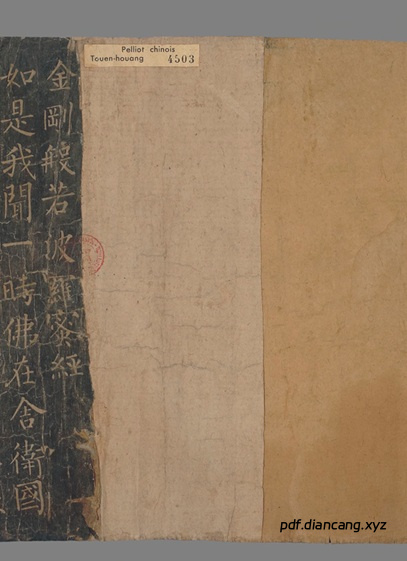 Pelliot chinois
Touen-houang 4503
金剛般若波羅蜜經
如是我聞一時佛在舍衛國
pdf.diancang.xyz